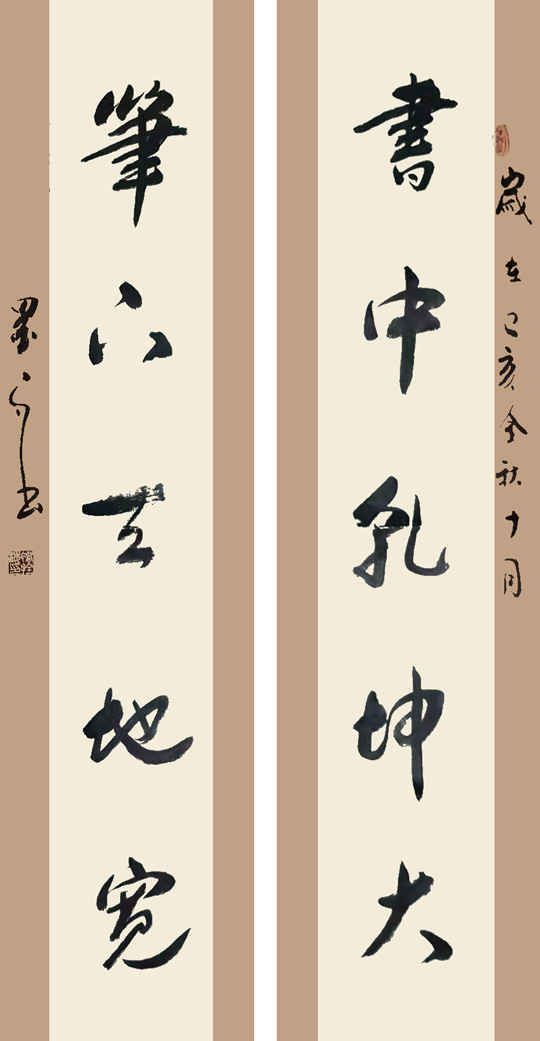 歲在己亥金秋十月
書中乾坤大
筆下天地寬
墨 书